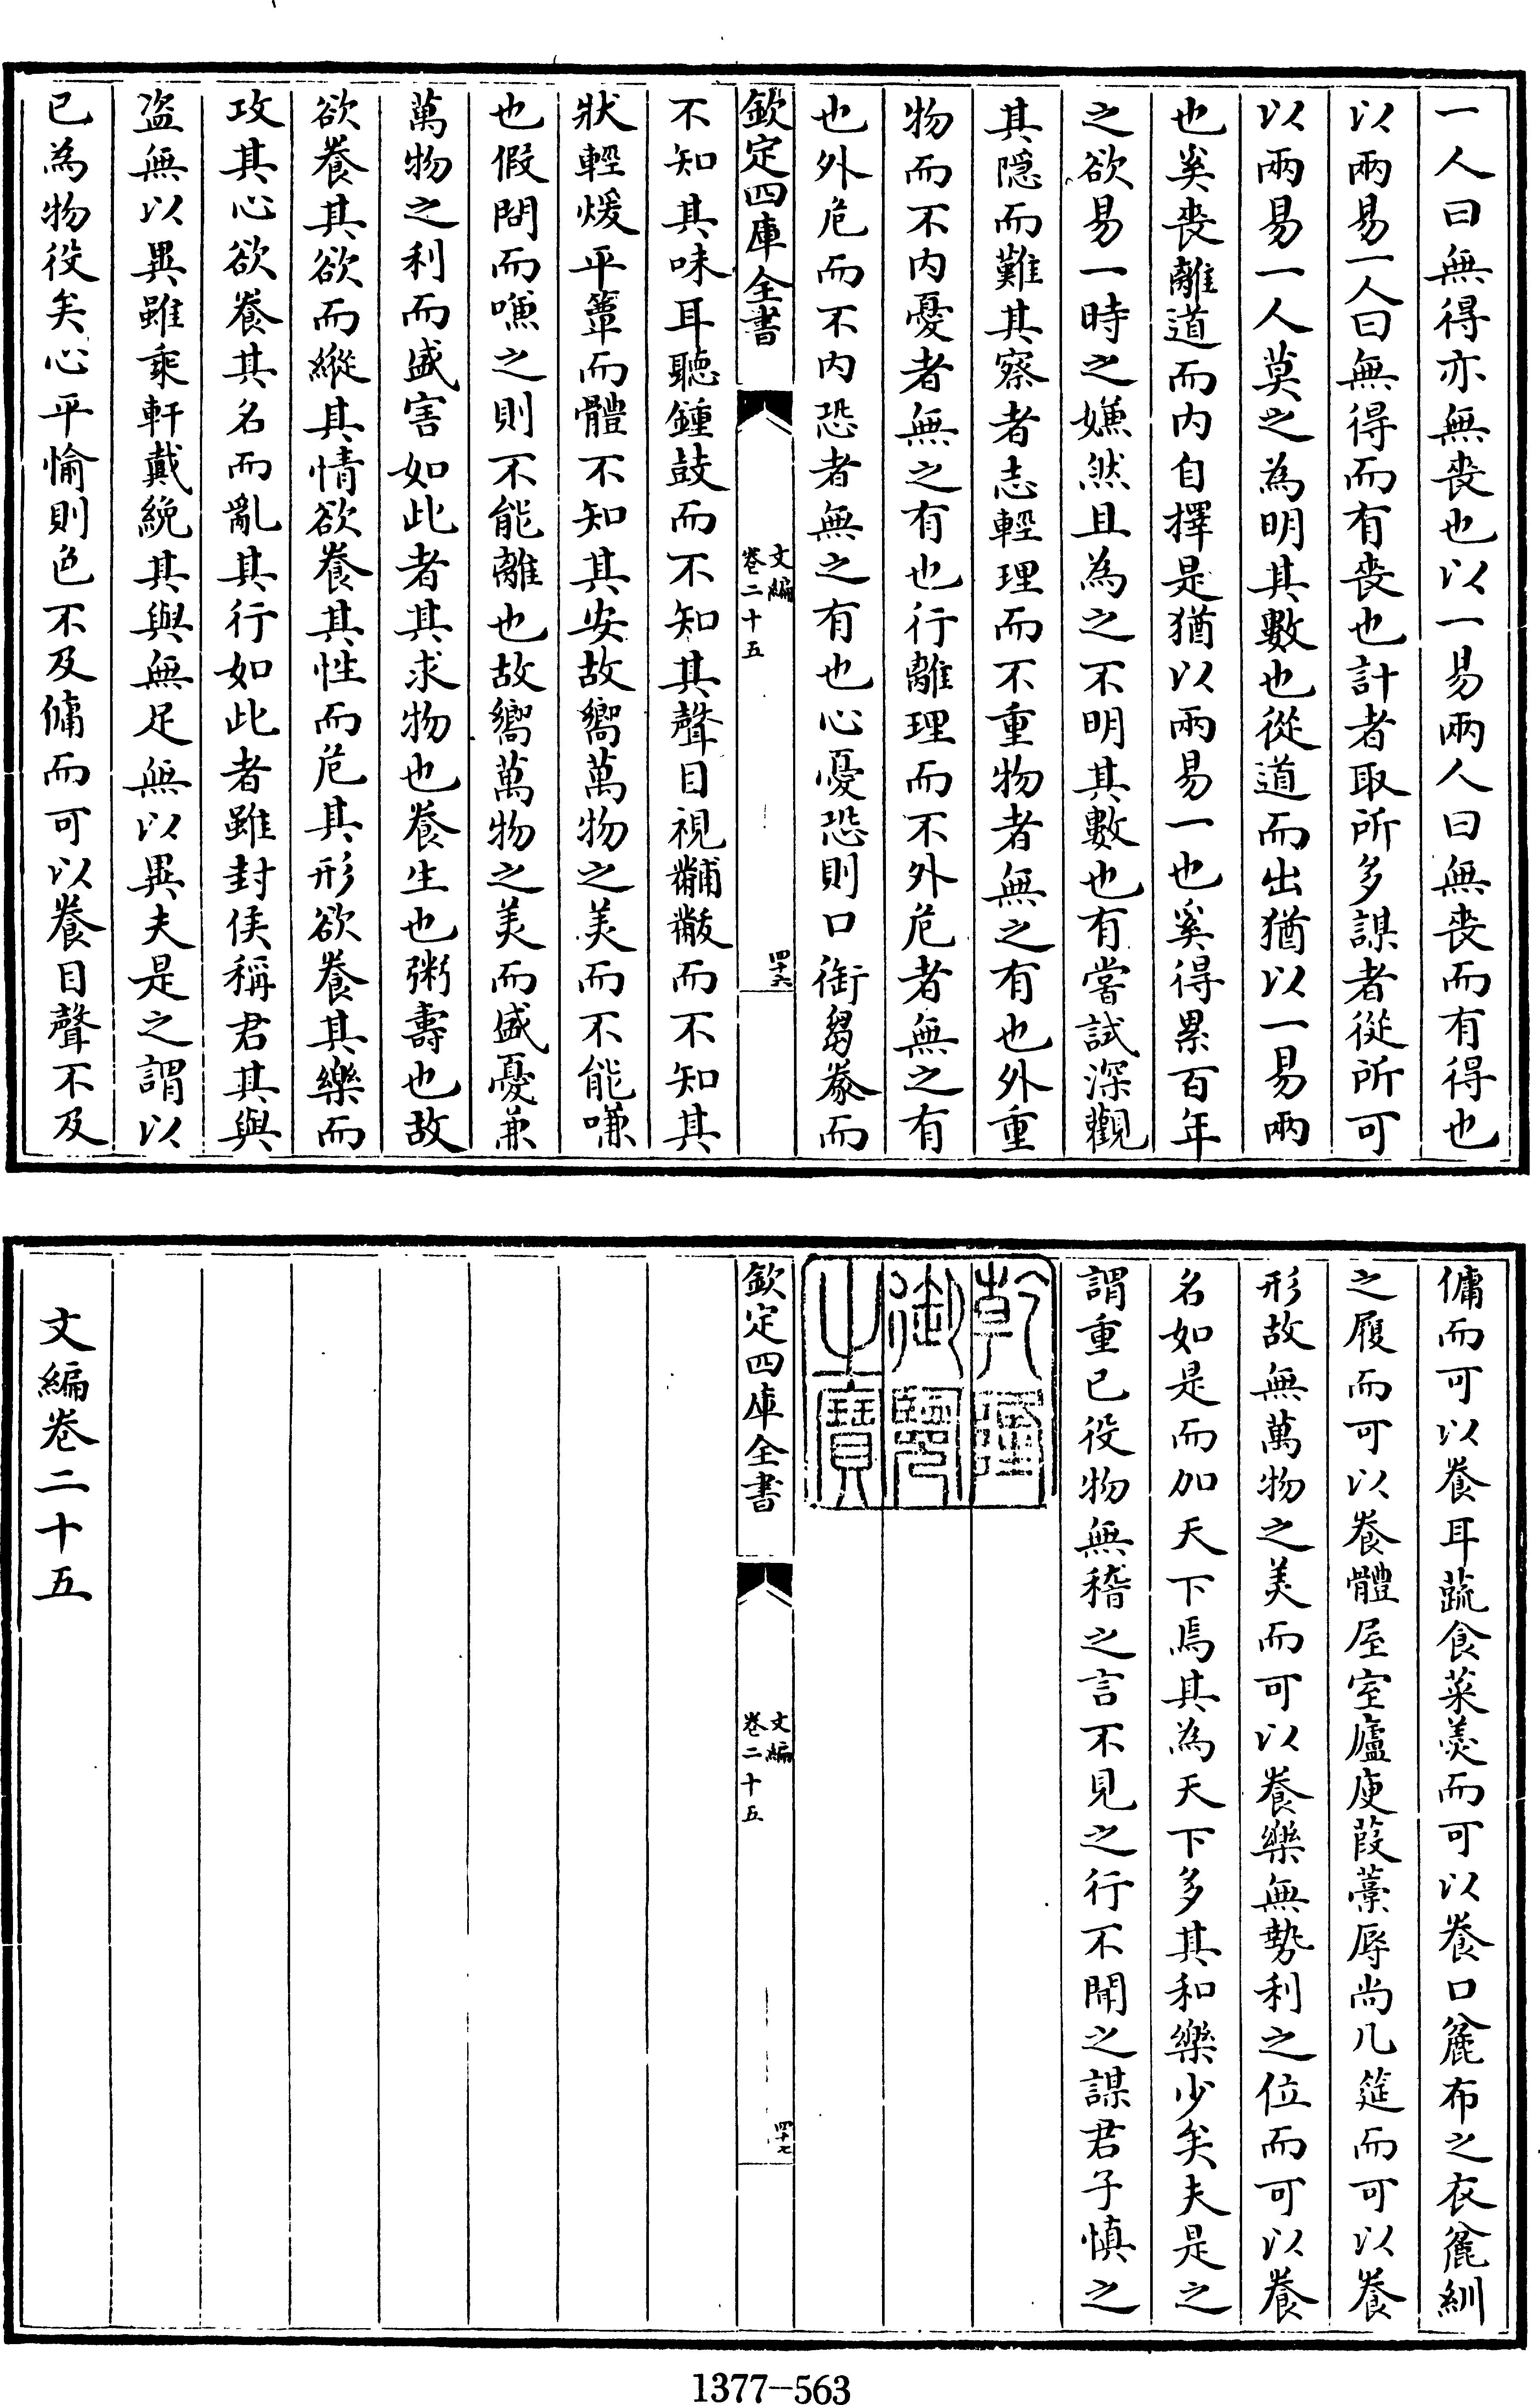 一人曰無得亦無喪也以一易兩人曰無喪而有得也
以兩易一人曰無得而有喪也計者取所多謀者從所可
以兩易一人莫之為明其數也從道而出猶以一易兩
也奚喪離道而内自擇是猶以兩易一也奚得累百年
之欲易一時之嫌然且為之不明其數也有嘗試深觀
其隱而難其察者志輕理而不重物者無之有也外重
物而不内憂者無之有也行離理而不外危者無之有
也外危而不内恐者無之有也心憂恐則口銜芻豢而
欽定四庫全書
文編
卷二十五
四十六
不知其味耳聽鍾鼓而不知其聲目視黼黻而不知其
狀輕煖平簟而體不知其安故嚮萬物之美而不能嗛
也假問而嗛之則不能離也故嚮萬物之美而盛憂兼
萬物之利而盛害如此者其求物也養生也粥壽也故
欲養其欲而縱其情欲養其性而危其形欲養其樂而
攻其心欲養其名而亂其行如此者雖封侯稱君其與
盗無以異雖乘軒戴絻其與無足無以異夫是之謂以
已為物役矣心平愉則色不及傭而可以養目聲不及
傭而可以養耳蔬食菜羹而可以養口麄布之衣麄紃
之履而可以養體屋室廬庾葭藁蓐尚几筵而可以養
形故無萬物之美而可以養樂無勢利之位而可以養
名如是而加天下焉其為天下多其和樂少矣夫是之
謂重已役物無稽之言不見之行不聞之謀君子慎之
乾隆
御覽
之寶
欽定四庫全書
文編
卷二十五
四十七
文編卷二十五
1377-563